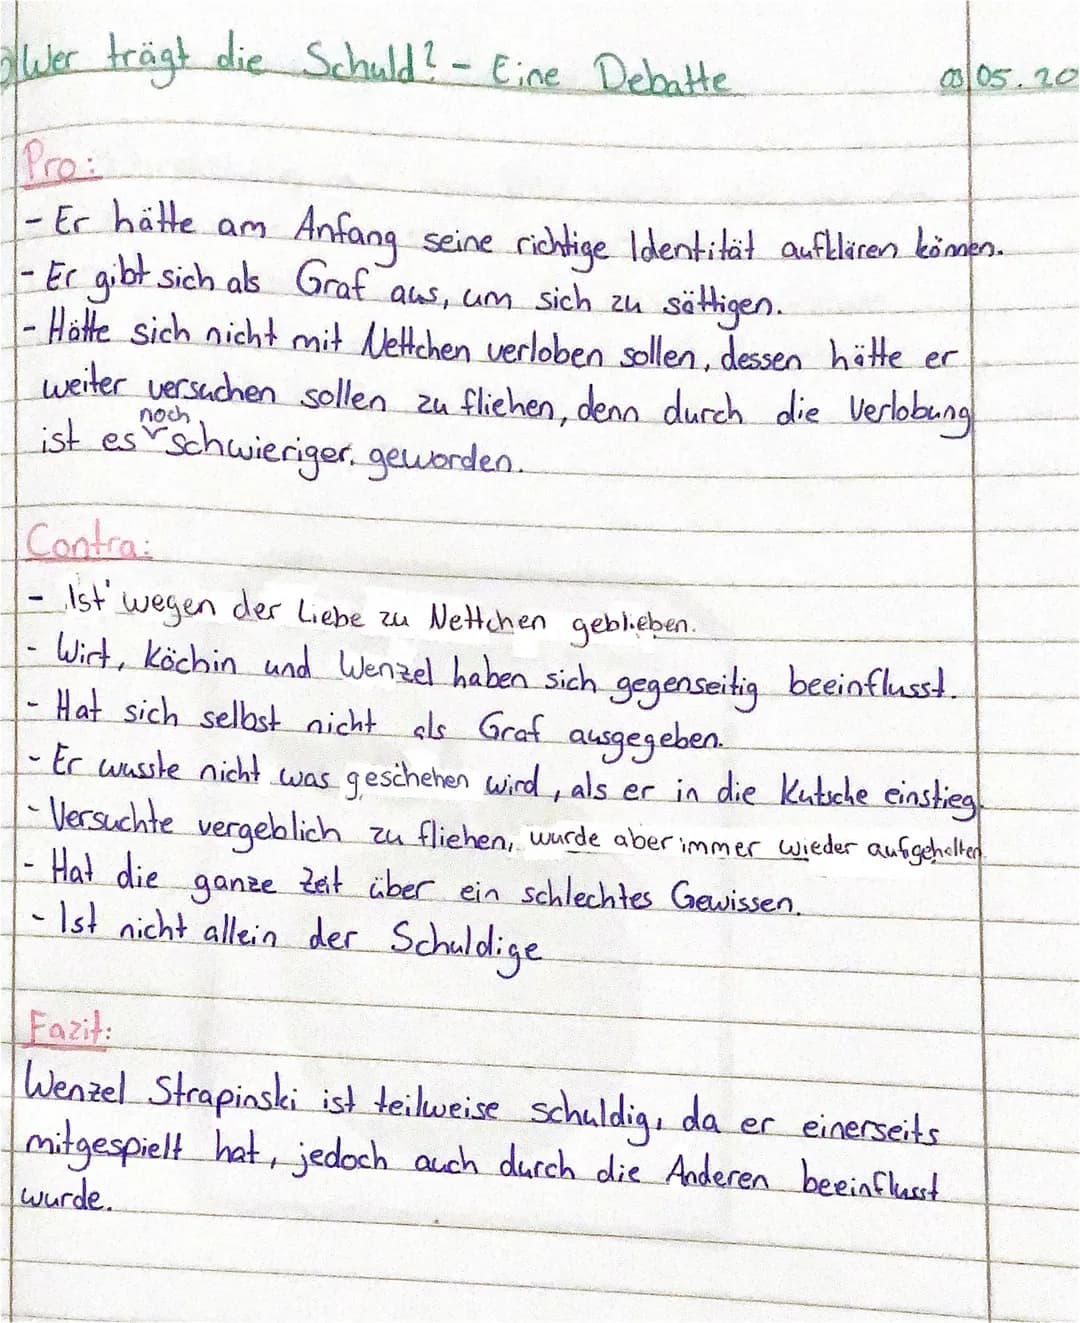 Wer trägt die Schuld? - Eine Debatte 03.05.20
Pro:
- Er hätte am Anfang seine richtige Identität aufklären können.
- Er gibt sich als Graf aus, um sich zu sättigen.
- Hätte sich nicht mit Nettchen verloben sollen, dessen hätte er
weiter versuchen sollen zu fliehen, denn durch die Verlobung
noch
ist es schwieriger geworden.
Contra:
- Ist wegen der Liebe zu Nettchen geblieben.
- Wirt, Köchin und Wenzel haben sich gegenseitig beeinflusst.
- Hat sich selbst nicht als Graf ausgegeben.
- Er wusste nicht was geschehen wird, als er in die Kutsche einstieg.
- Versuchte vergeblich zu fliehen, wurde aber immer wieder aufgehalten.
- Hat die ganze Zeit über ein schlechtes Gewissen.
- Ist nicht allein der Schuldige
Fazit:
Wenzel Strapinski ist teilweise schuldig, da er einerseits
mitgespielt hat, jedoch auch durch die Anderen beeinflusst
wurde.